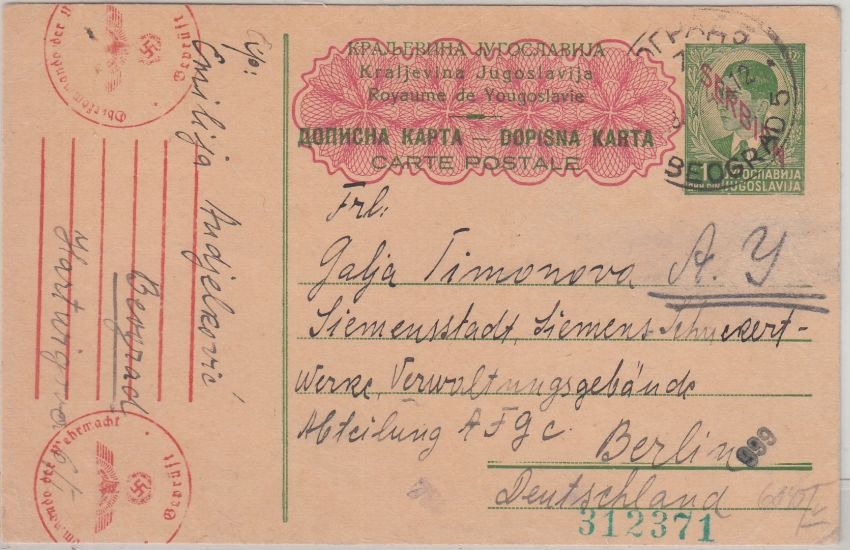 КРАЉЕВИНА ЈУГОСЛАВИЈА
Kraljevina Jugoslavija
Royaume de Yougoslavie
ДОПИСНА КАРТА — DOPISNA KARTA
CARTE POSTALE
SERBIEN
ЈУГОСЛАВИЈА
JUGOSLAVIJA
BEOGRAD 5
Frl:
Galja Timonova
A. Y
Siemensstadt, Siemens-Schuckert-
Werke, Verwaltungsgebände
Abteilung AFGC.
Berlin
999
Deutschland
312371
Emilija Andjelković
Beograd
Geprüft
Oberkommando der
Geprüft
der Wehrmacht